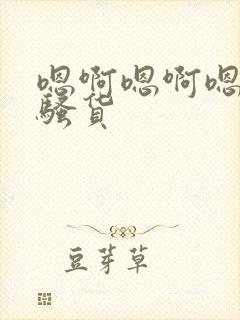 嗯啊嗯啊嗯
骚货
豆芽草